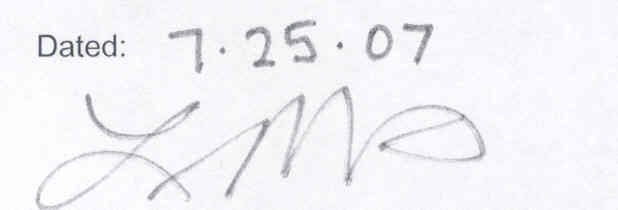 Dated: 7.25.07